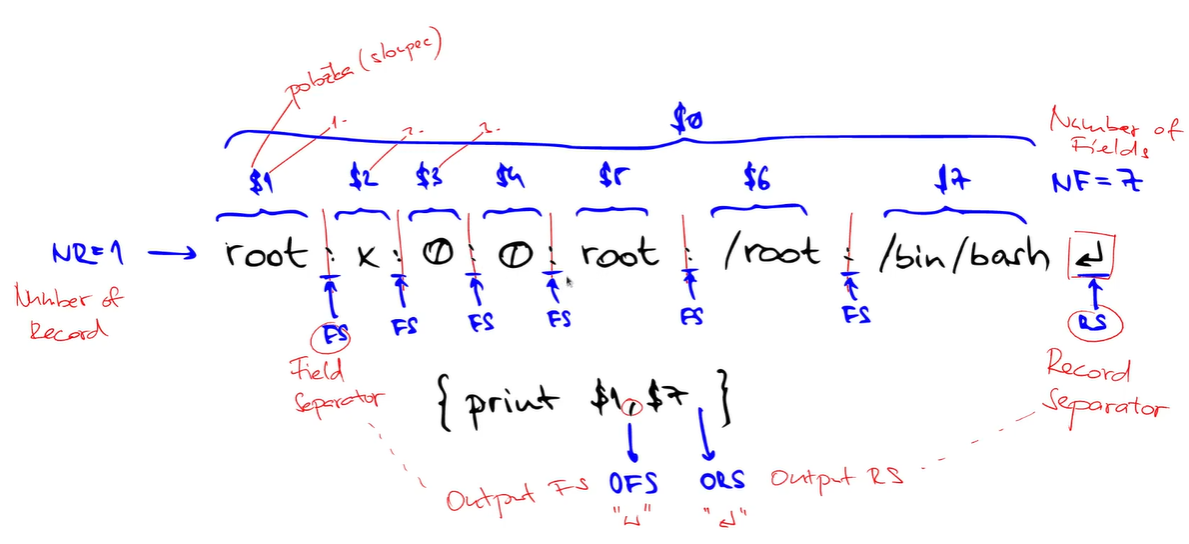 položka (sloupec)
1. 2. 3.
$0
Number of
Fields
$1 $2 $3 $4 $5 $6 $7 NF=7
NR=1 → root : x : 0 : 0 : root : /root : /bin/bash ↵
Number of
Record
FS FS FS FS FS FS RS
Field
Separator
Record
Separator
{ print $1, $7 }
Output FS OFS ORS Output RS
"␣" "↵"